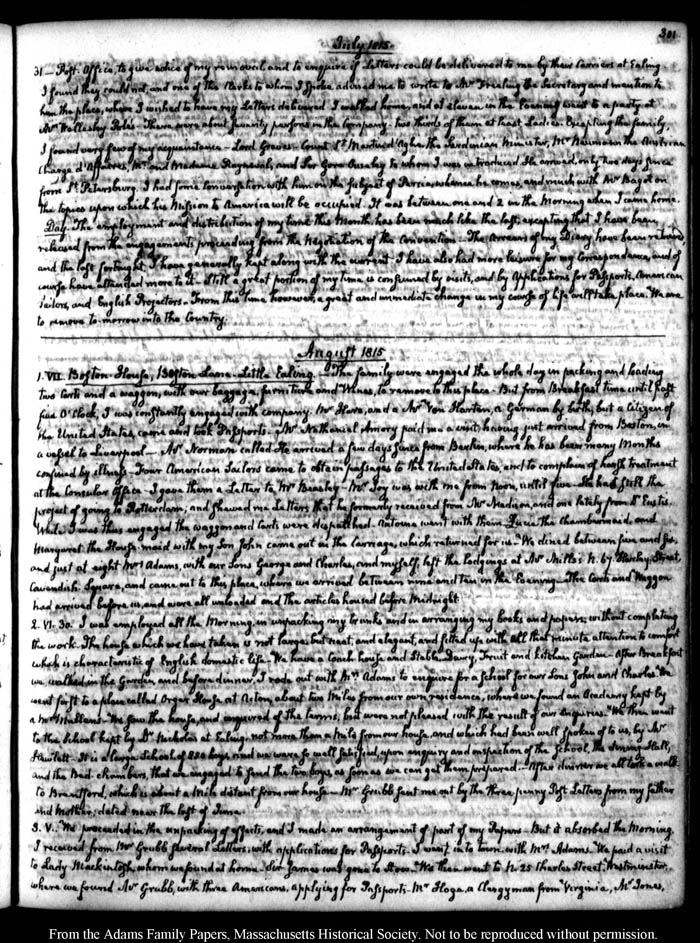 301
July 1815.
31— Post-Office, to give advice of my removal and to enquire if Letters could be delivered to me by their Carriers at Ealing.
I found they could not, and one of the Clerks to whom I spoke advised me to write to Mr Freeling the Secretary and mention to
him the place, where I wished to have my Letters delivered. I walked home, and at eleven in the Evening went to a party at
Mr Wellesley Pole's. There were about seventy persons in the Company. two thirds of them at least Ladies. Excepting the family,
I found very few of my acquaintance— Lord Graves. Count St. Martin d'Aglie the Sardinian Minister, Mr Neumann the Austrian
Chargé d'Affaires, Mr and Madame and Sir Gore Ouseley to whom I was introduced. He arrived, only two days since
from St. Petersburg. I had some conversation with him on the subject of Persia whence he comes, and much with Mr Bagot on
the topics upon which his Mission to America will be occupied. It was between one and 2 in the Morning when I came home.
Day. The employment and distribution of my time this Month, has been much like the last, excepting that I have been
released from the engagements proceeding from the Negotiation of the Convention. The Arrears of my Diary have been
and the last fortnight, I have generally kept along with the current. I have also had more leisure for my Correspondence, and of
course have attended more to it. Still a great portion of my time is consumed by visits, and by Applications for Passports, American
Sailors, and English Projectors. From this time however, a great and immediate change in my course of life will take place. We are
to remove to-morrow into the Country.
August 1815
1. VII. Boston House, Boston Lane. Little Ealing. The family were engaged the whole day in packing and loading
two Carts and a waggon, with our baggage, furniture and Wines, to remove to this place. But from Breakfast time until past
five O'Clock, I was constantly engaged with company. Mr and a Mr Von Harten, a German by birth, but a Citizen of
the United States, came and took Passports. Mr Nathaniel Amory paid me a visit, having just arrived from Boston, in
a vessel to Liverpool— Mr Norman called. He arrived a few days since from where he has been many Months
confined by illness. Four American Sailors came to obtain passages to the United States, and to complain of harsh treatment
at the Consular Office. I gave them a Letter to Mr Beasley. Mr Joy was with me from Noon, until five. He had still the
project of going to Rotterdam, and shewed me Letters that he formerly received from Mr Madison, and one lately from Dr Eustis.
While I was thus engaged the waggon and Carts were despatched. Antoine went with them. Lucie the chambermaid, and
Margaret the House maid with my Son John came out in the Carriage, which returned for us. We dined between five and six,
and just at eight Mrs Adams, with our Sons George and Charles, and myself, left the lodgings at Mr Mills's N. 67 Harley Street,
Cavendish Square, and came out to this place, where we arrived between nine and ten in the Evening. The Carts and Waggon
had arrived before us, and were all unloaded and the articles housed before Midnight.
2. VI. 30. I was employed all the Morning, in unpacking my trunks and in arranging my books and papers; without completing
the work. The house which we have taken is not large, but neat, and elegant, and fitted up with all that minute attention to comfort
which is characteristic of English domestic life. We have a Coach house and Stable, Dairy, Fruit and Kitchen Garden. After Breakfast
we walked in the Garden, and before dinner, I rode out with Mrs Adams to enquire for a School for our Sons John and Charles. We
went first to a place called Orger House, at Acton, about two Miles from our own residence, where we found an Academy kept by
a Mr Mullens. We saw the house, and enquired of the terms, but were not pleased with the result of our enquiries. We then went
to the School kept by Dr Nicholas at Ealing, not more than a Mile from our house, and which had been well spoken of to us, by Mr
Hewlett. It is a large School of 250 boys, and we were so well satisfied, upon enquiry and inspection of the School, the dining Hall,
and the Bed-chambers, that we engaged to send the two boys, as soon as we can get them prepared. After dinner we all took a walk
to Brentford, which is about a Mile distant from our house— Mr Grubb sent me out by the three penny Post Letters from my father
and Mother, dated near the last of June.
3. V. We proceeded in the unpacking of effects, and I made an arrangement of part of my Papers. But it absorbed the Morning.
I received from Mr Grubb several Letters, with applications for Passports. I went in to town with Mrs Adams. We paid a visit
to Lady Mackintosh, whom we found at home. Sir James was gone to We then went to N. 25 Charles Street, Westminster,
where we found Mr Grubb, with three Americans, applying for Passports. Mr Hoge, a Clergyman from Virginia, Mr Jones,
From the Adams Family Papers, Massachusetts Historical Society. Not to be reproduced without permission.